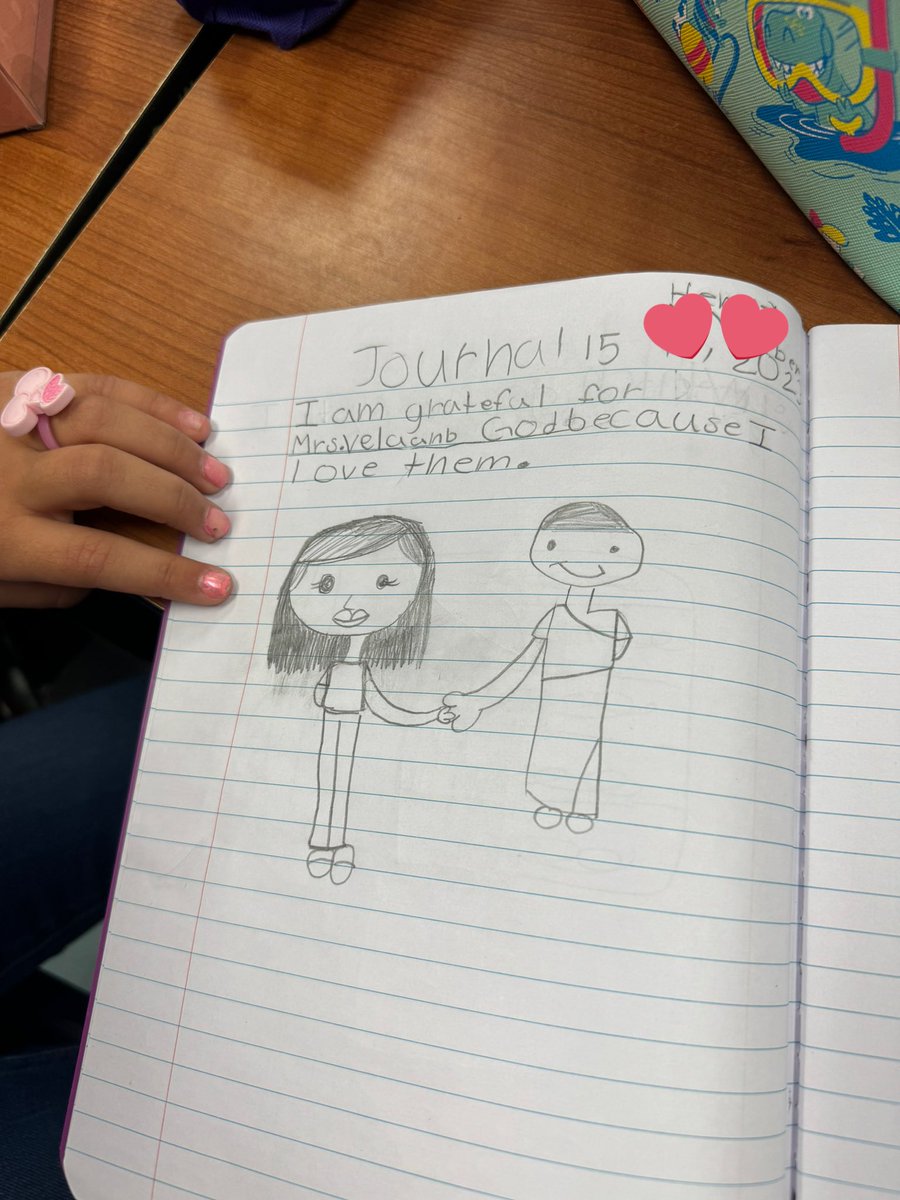 Journal 15
I am grateful for
Mrs.Velaanb Godbecause I
love them.